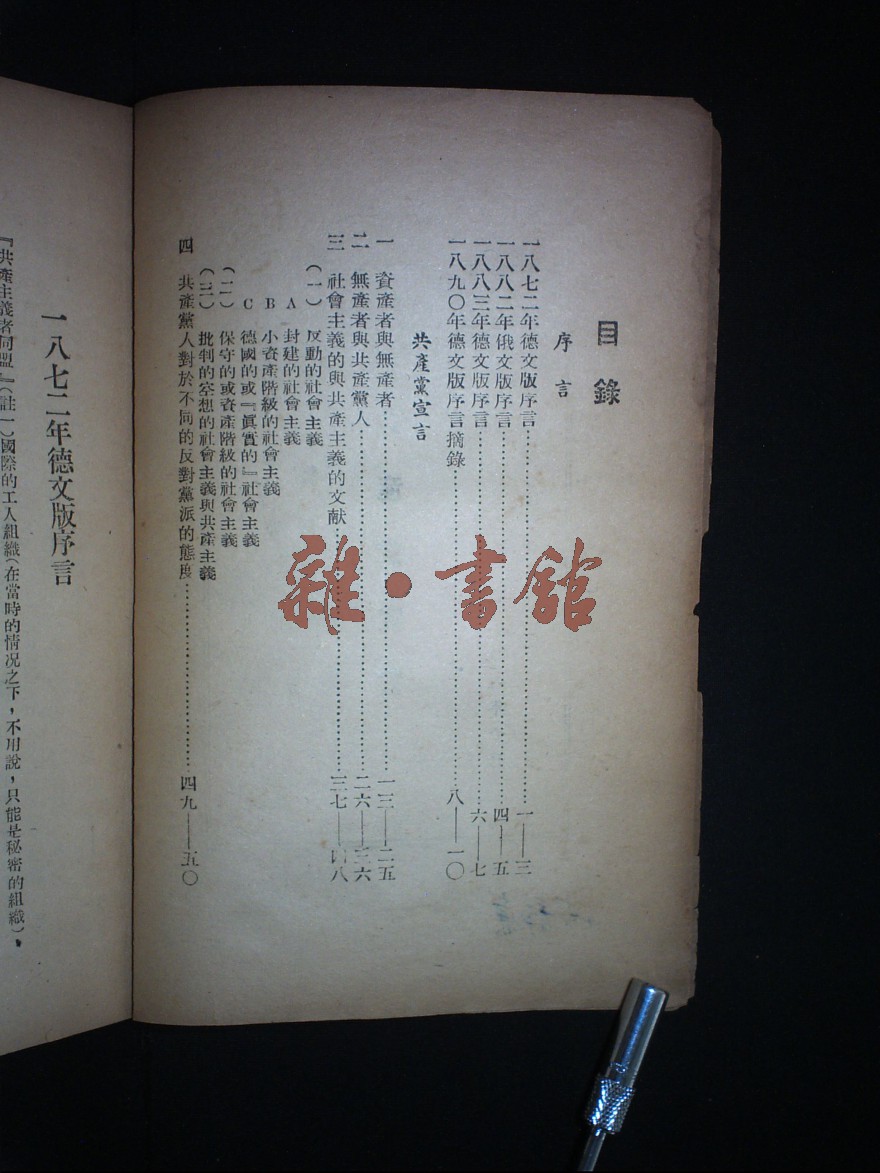 目錄
序言
一八七二年德文版序言……一——三
一八八二年俄文版序言……四——五
一八八三年德文版序言……六——七
一八九〇年德文版序言摘錄……八——一〇
共產黨宣言
一 資產者與無產者……一三——二五
二 無產者與共產黨人……二六——三六
三 社會主義的與共產主義的文献……三七——四八
（一） 反動的社會主義
A 封建的社會主義
B 小資產階級的社會主義
C 德國的或『眞實的』社會主義
（二） 保守的或資產階級的社會主義
（三） 批判的空想的社會主義與共產主義
四 共產黨人對於不同的反對黨派的態度……四九——五〇
一八七二年德文版序言
『共產主義者同盟』（註一）國際的工人組織（在當時的情況之下，不用說，只能是秘密的組織），
雜·書舘